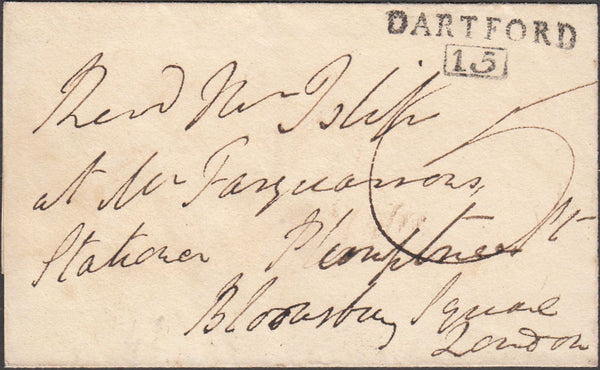 DARTFORD
15
Revd Mr Islip
at Mr Farquarsons
Stationer Plumptree St
Bloomsbury Square
London